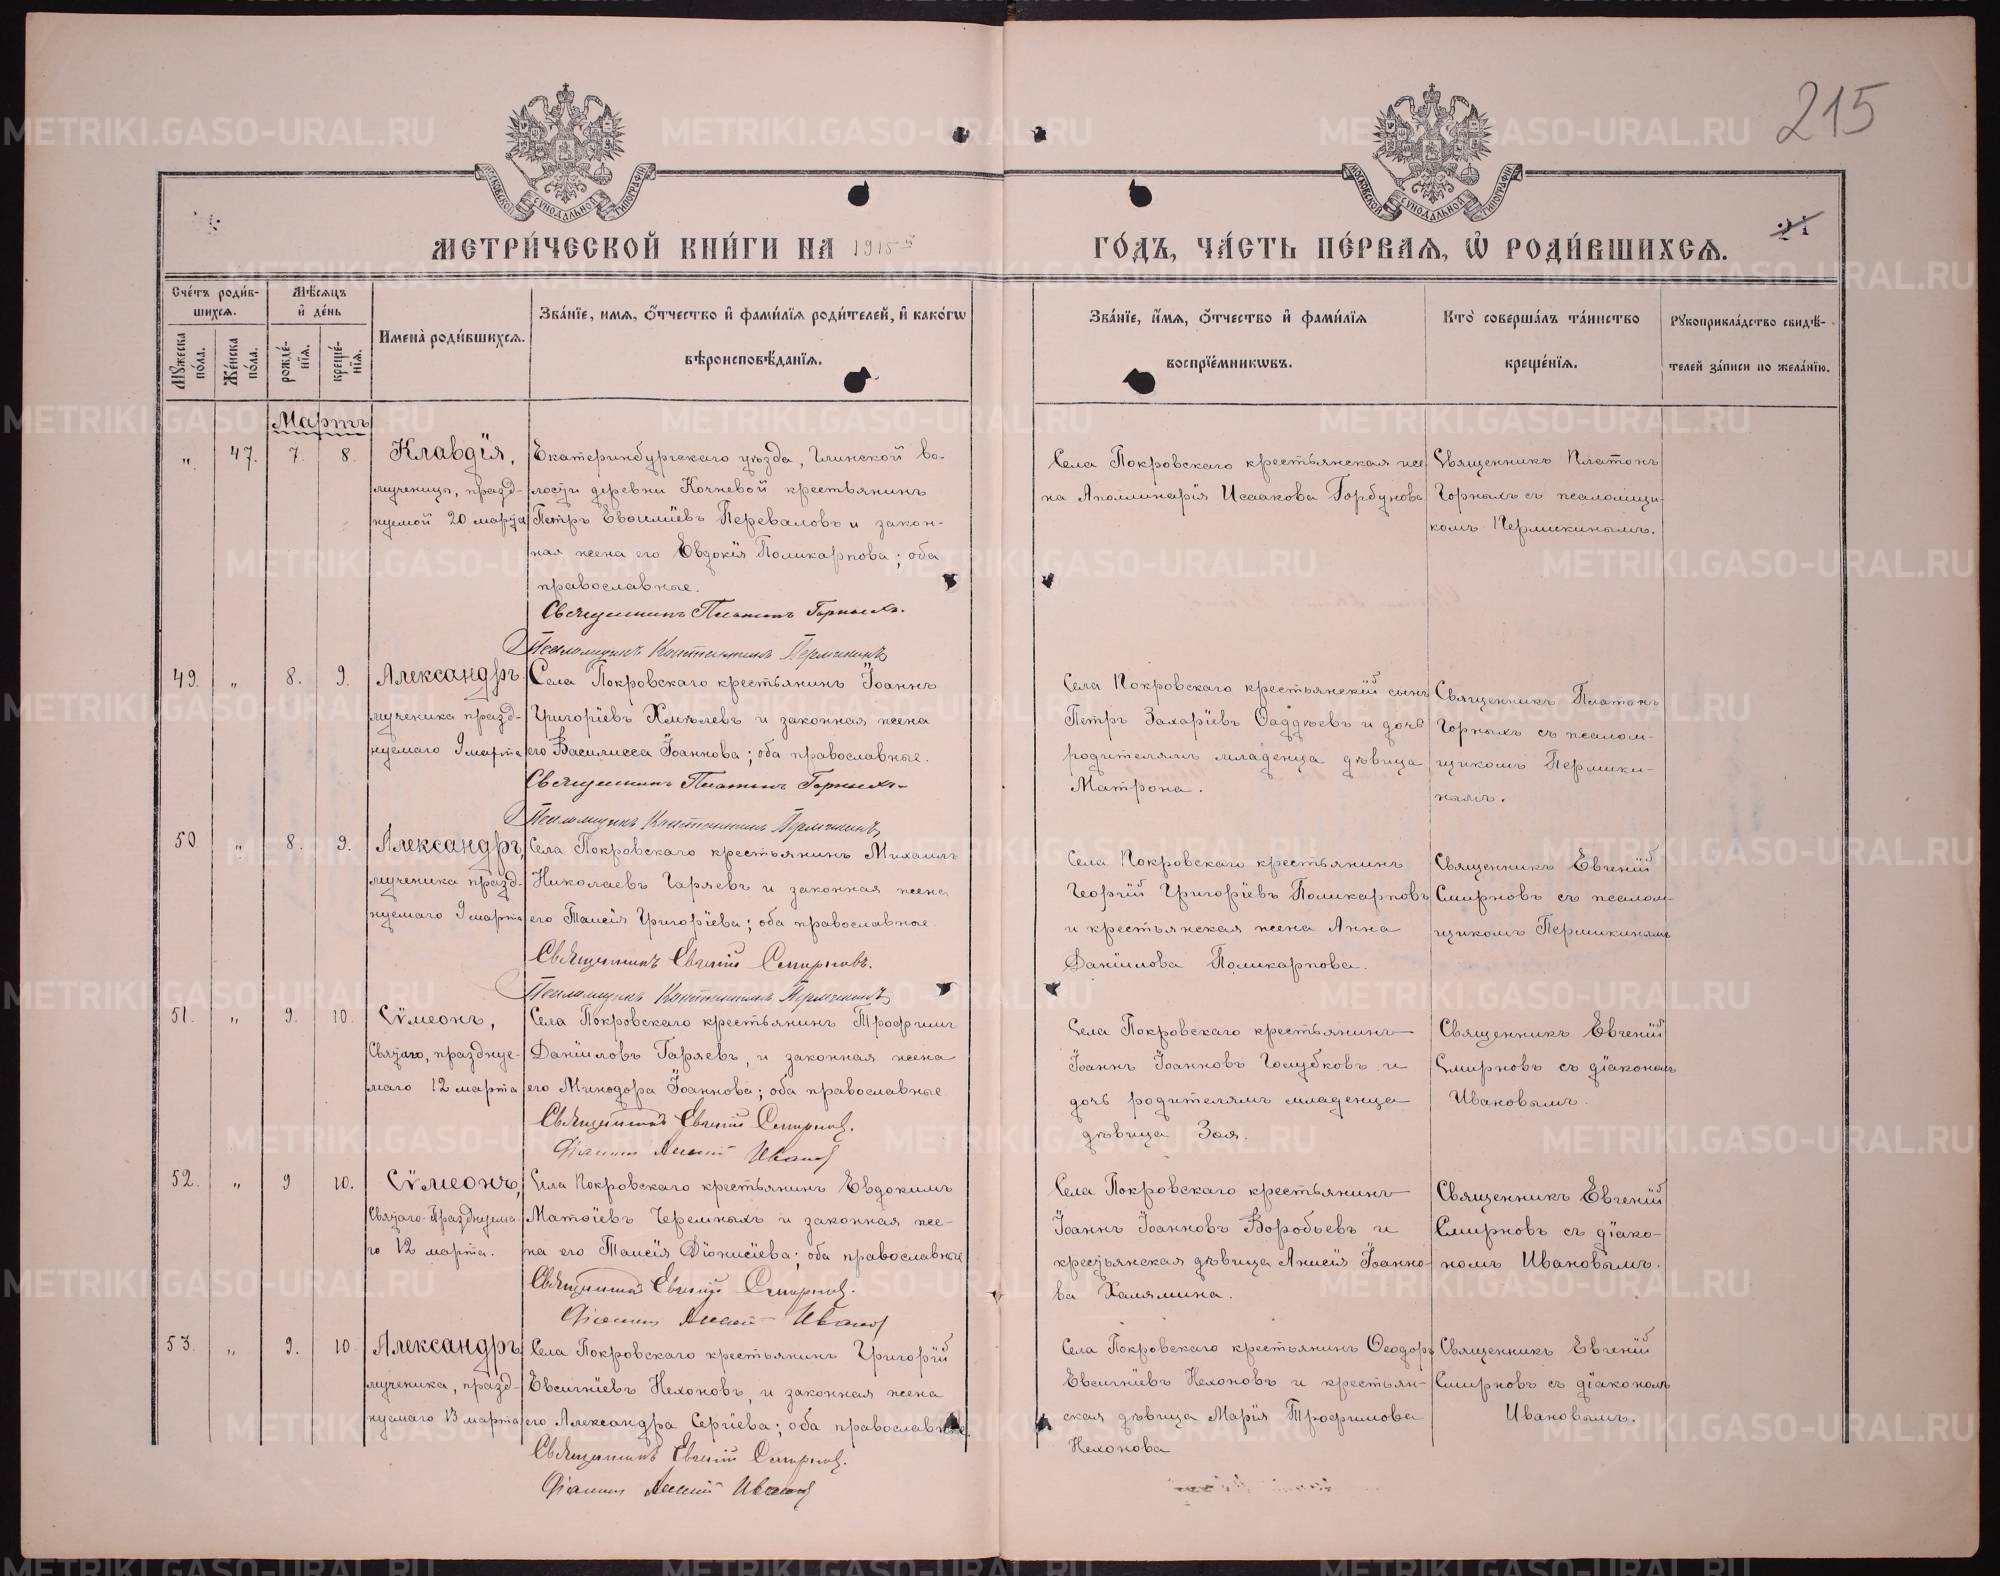 215
МЕТРИ́ЧЕСКОЙ КНИ́ГИ НА 1915 ГО́ДЪ, ЧА́СТЬ ПЕ́РВАЯ, Ѡ РОДИ́ВШИХСЯ.
Сче́тъ роди́в-
шихся.
Мꙋ́жеска по́ла.
Же́нска по́ла.
Мѣ́сяцъ
и҆ де́нь
рожде́-
нїя.
креще́-
нїя.
Имена̀ роди́вшихся.
Зва́нїе, и́мя, ѻ҆́тчество и҆ фами́лїя роди́телей, и҆ како́гѡ
вѣроисповѣ́данїя.
Зва́нїе, и́мя, ѻ҆́тчество и҆ фами́лїя
воспрїе́мникѡвъ.
Кто̀ соверша́лъ та́инство
креще́нїя.
Рꙋкоприкла́дство свидѣ́-
телей за́писи по жела́нїю.
Мартъ
" 47. 7. 8. Клавдія,
мученицы, празд-
нуемой 20 марта
Екатеринбургскаго уѣзда, Глинской во-
лости деревни Кочневой крестьянинъ
Петръ Евсиліевъ Переваловъ и закон-
ная жена его Евдокія Поликарпова; оба
православные.
Священникъ Платонъ Горныхъ.
Псаломщикъ Константинъ Пермикинъ
Села Покровскаго крестьянская же-
на Аполлинарія Исаакова Горбунова
Священникъ Платонъ
Горныхъ съ псаломщи-
комъ Пермикинымъ.
49. " 8. 9. Александръ
мученика празд-
нуемаго 9 марта
Села Покровскаго крестьянинъ Іоаннъ
Григоріевъ Хмѣлевъ и законная жена
его Василисса Іоаннова; оба православные.
Священникъ Платонъ Горныхъ.
Псаломщикъ Константинъ Пермикинъ
Села Покровскаго крестьянскій сынъ
Петръ Захаріевъ Ѳаддѣевъ и дочь
родителямъ младенца дѣвица
Матрона.
Священникъ Платонъ
Горныхъ съ псалом-
щикомъ Пермики-
нымъ.
50 " 8. 9. Александръ,
мученика празд-
нуемаго 9 марта
Села Покровскаго крестьянинъ Михаилъ
Николаевъ Гаряевъ и законная жена
его Таисія Григоріева; оба православные.
Священникъ Евгеній Смирновъ.
Псаломщикъ Константинъ Пермикинъ
Села Покровскаго крестьянинъ
Георгій Григоріевъ Поликарповъ
и крестьянская жена Анна
Даніилова Поликарпова.
Священникъ Евгеній
Смирновъ съ псалом-
щикомъ Пермикинымъ
51. " 9. 10. Сѵмеонъ,
Святаго, празднуе-
маго 12 марта
Села Покровскаго крестьянинъ Трофимъ
Даніиловъ Гаряевъ, и законная жена
его Минодора Іоаннова; оба православные
Священникъ Евгеній Смирновъ.
Діаконъ Алексій Ивановъ
Села Покровскаго крестьянинъ
Іоаннъ Іоанновъ Голубковъ и
дочь родителямъ младенца
дѣвица Зоя.
Священникъ Евгеній
Смирновъ съ діакономъ
Ивановымъ.
52. " 9 10. Сѵмеонъ,
Святаго Празднуема-
го 12 марта.
Села Покровскаго крестьянинъ Евдокимъ
Матѳіевъ Черемныхъ и законная же-
на его Таисія Діонисіева; оба православные
Священникъ Евгеній Смирновъ.
Діаконъ Алексій Ивановъ
Села Покровскаго крестьянинъ
Іоаннъ Іоанновъ Воробьевъ и
крестьянская дѣвица Анисія Іоанно-
ва Халямина.
Священникъ Евгеній
Смирновъ съ діако-
номъ Ивановымъ.
53. " 9. 10 Александръ
мученика, празд-
нуемаго 13 марта
Села Покровскаго крестьянинъ Григорій
Евсигніевъ Нехоновъ, и законная жена
его Александра Сергіева; оба православные.
Священникъ Евгеній Смирновъ.
Діаконъ Алексій Ивановъ
Села Покровскаго крестьянинъ Ѳеодоръ
Евсигніевъ Нехоновъ и крестьян-
ская дѣвица Марія Трофимова
Нехонова
Священникъ Евгеній
Смирновъ съ діакономъ
Ивановымъ.
METRIKI.GASO-URAL.RU